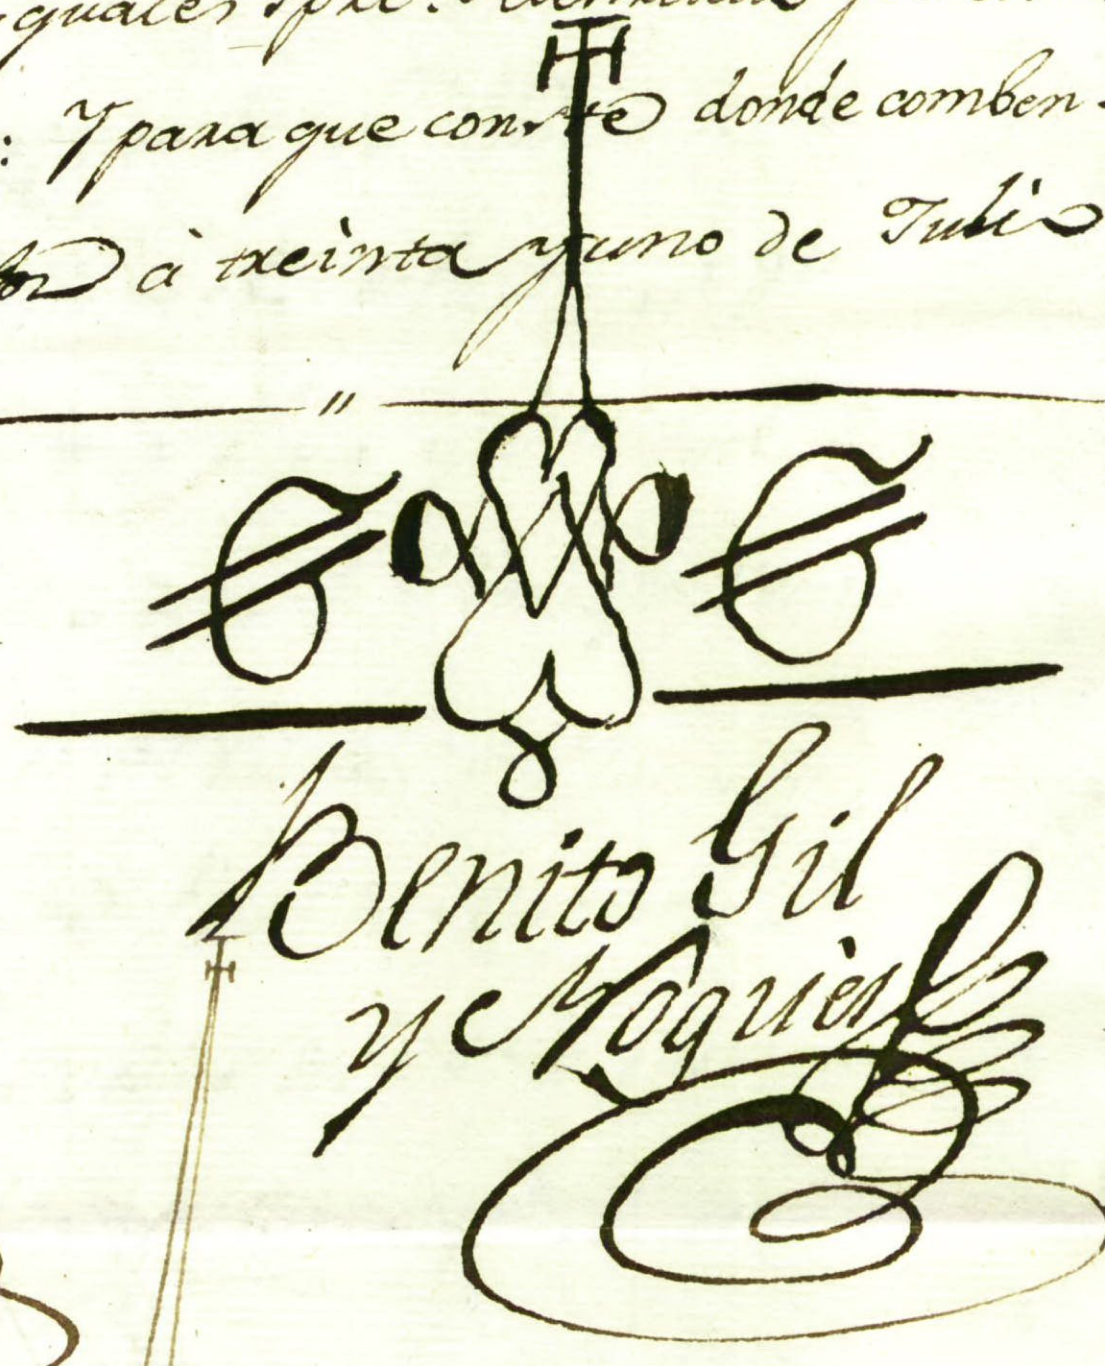 quales
: Y para que conste donde comben-
à treinta y uno de Julio
S S
Benito Gil
y Noguès